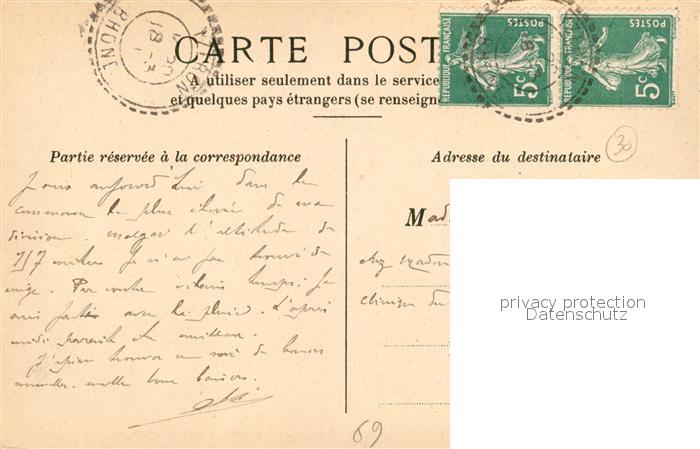 CARTE POST
A utiliser seulement dans le service
et quelques pays étrangers (se renseign
RHONE
18
RÉPUBLIQUE FRANÇAISE
POSTES
5c
RÉPUBLIQUE FRANÇAISE
POSTES
5c
30
Partie réservée à la correspondance
Adresse du destinataire
Je suis aujourd'hui dans la
commune la plus élevée de ma
division. malgré l'altitude de
717 mètres Je n'ai pas trouvé de
neige. Par contre vilain temps; je
suis parti avec la pluie. L'après
midi paraît être meilleure.
J'espère trouver ce soir de bonnes
nouvelles. mille bons baisers.
Mad
chez Madm
clinique du
privacy protection
Datenschutz
69